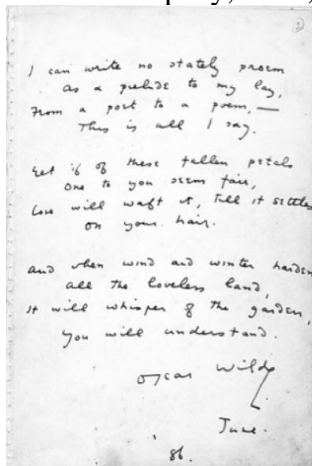 I can write no stately proem
As a prelude to my lay,
From a poet to a poem, —
This is all I say.
Yet if of these fallen petals
One to you seem fair,
Love will waft it, till it settles
On your hair.
And when wind and winter harden
All the loveless land,
It will whisper of the garden,
You will understand.
Oscar Wilde
June.
'86.